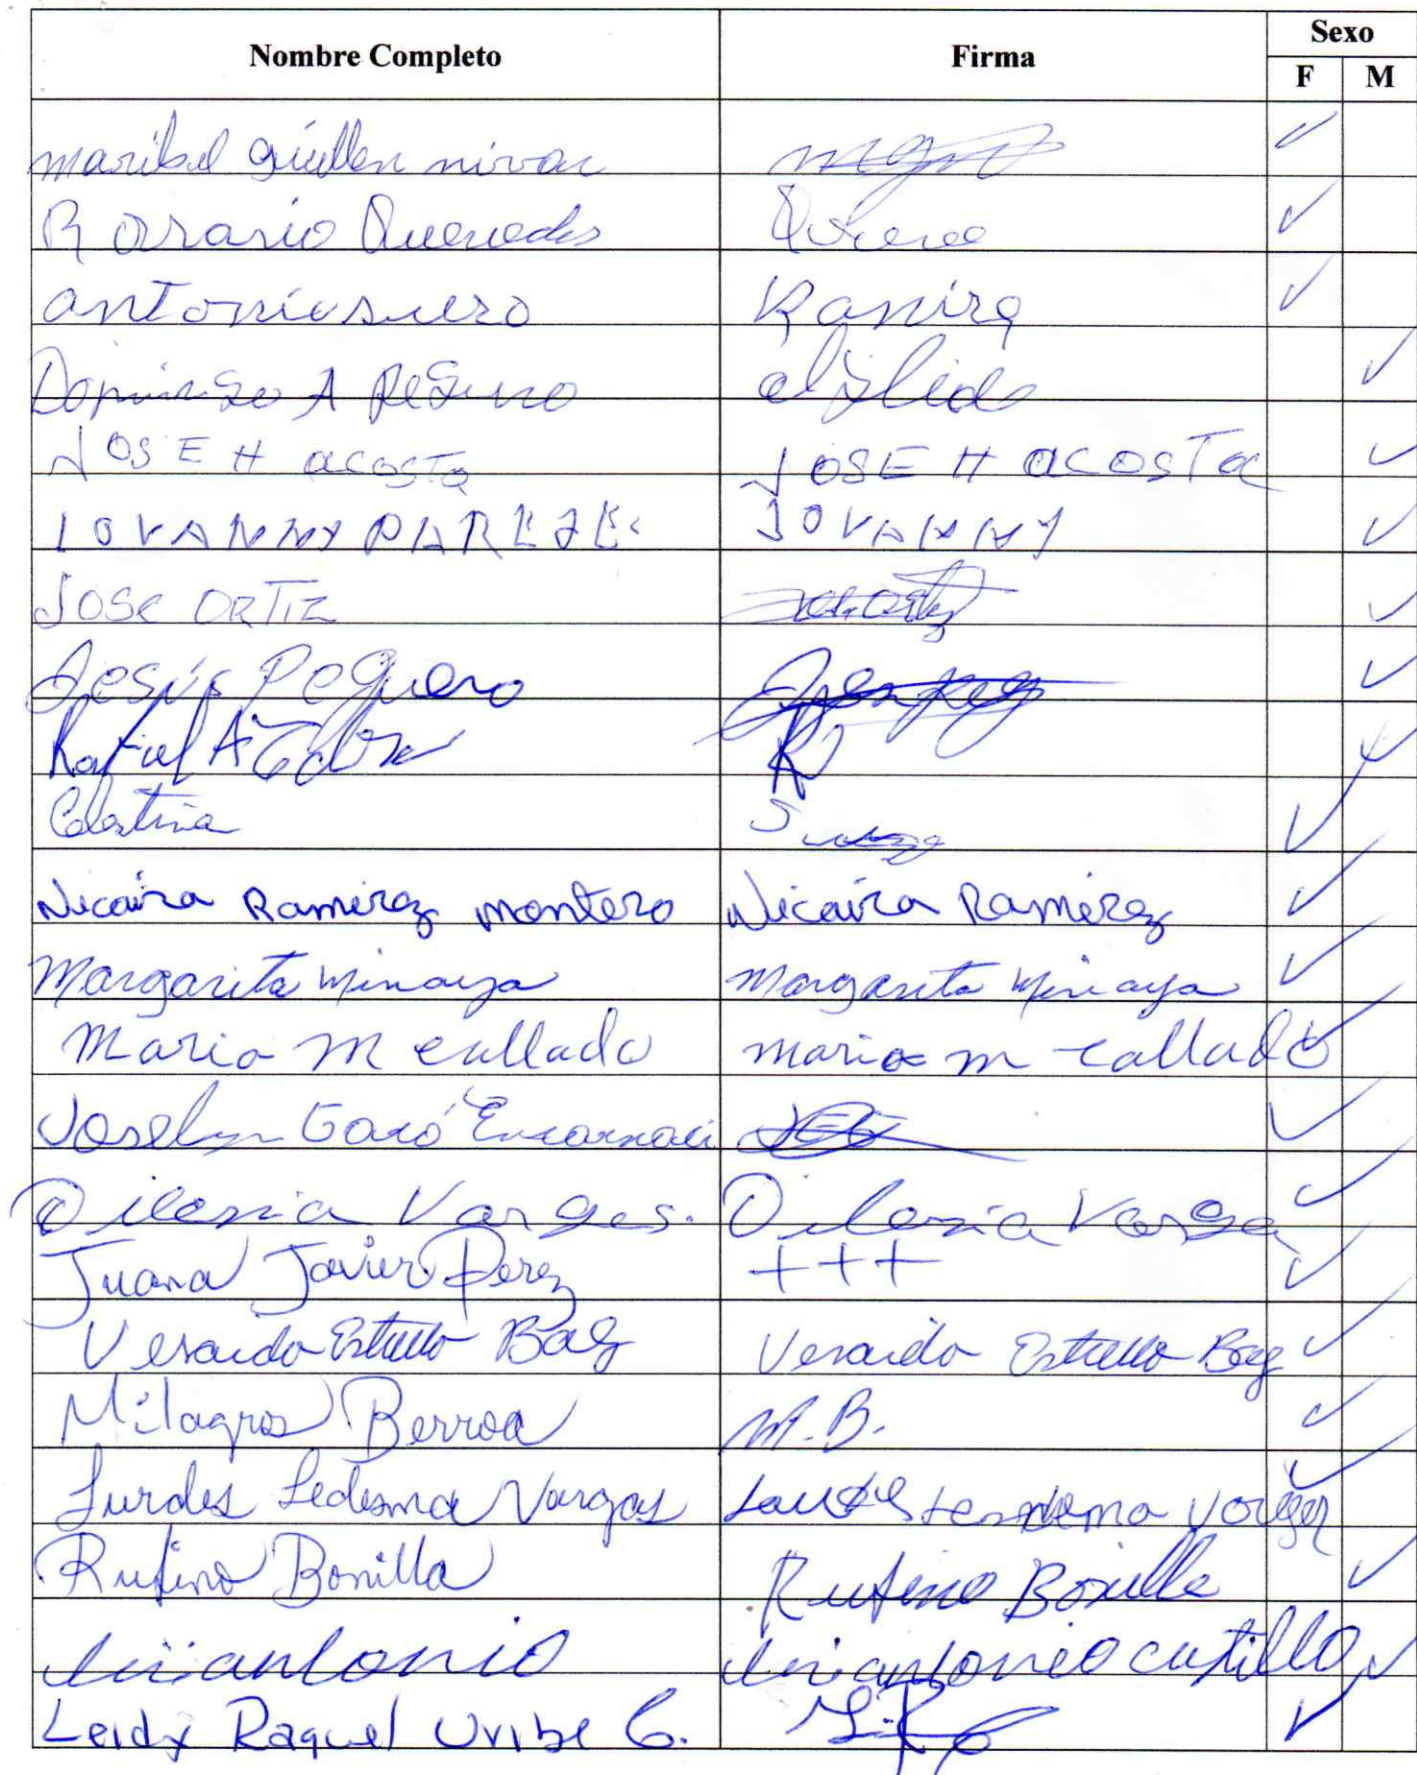 Nombre Completo Firma Sexo
F M
maribel guillen nivar
Rosario Quevedo
antonia suero Ramira
Domingo A Peguero
JOSE H acosta JOSE H acosta
JOVANNY PAREZE JOVANNY
JOSE ORTIZ
Jesús Peguero
Rafael A
Celestina
Nicaira Ramirez montero Nicaira Ramirez
Margarita Minaya Margarita Minaya
Maria M callado maria m callado
Joselyn Garó Encarnaci
Dilenia Vargas. Dilenia Varga
Juana Javier Perez +++
Veraida Estrella Bag Veraida Estrella Bag
Milagros Berroa M.B.
Lurdes Ledesma Vargas
Rufino Bonilla Rufino Bonilla
antonio antonio castillo
Leidy Raquel Uribe C.